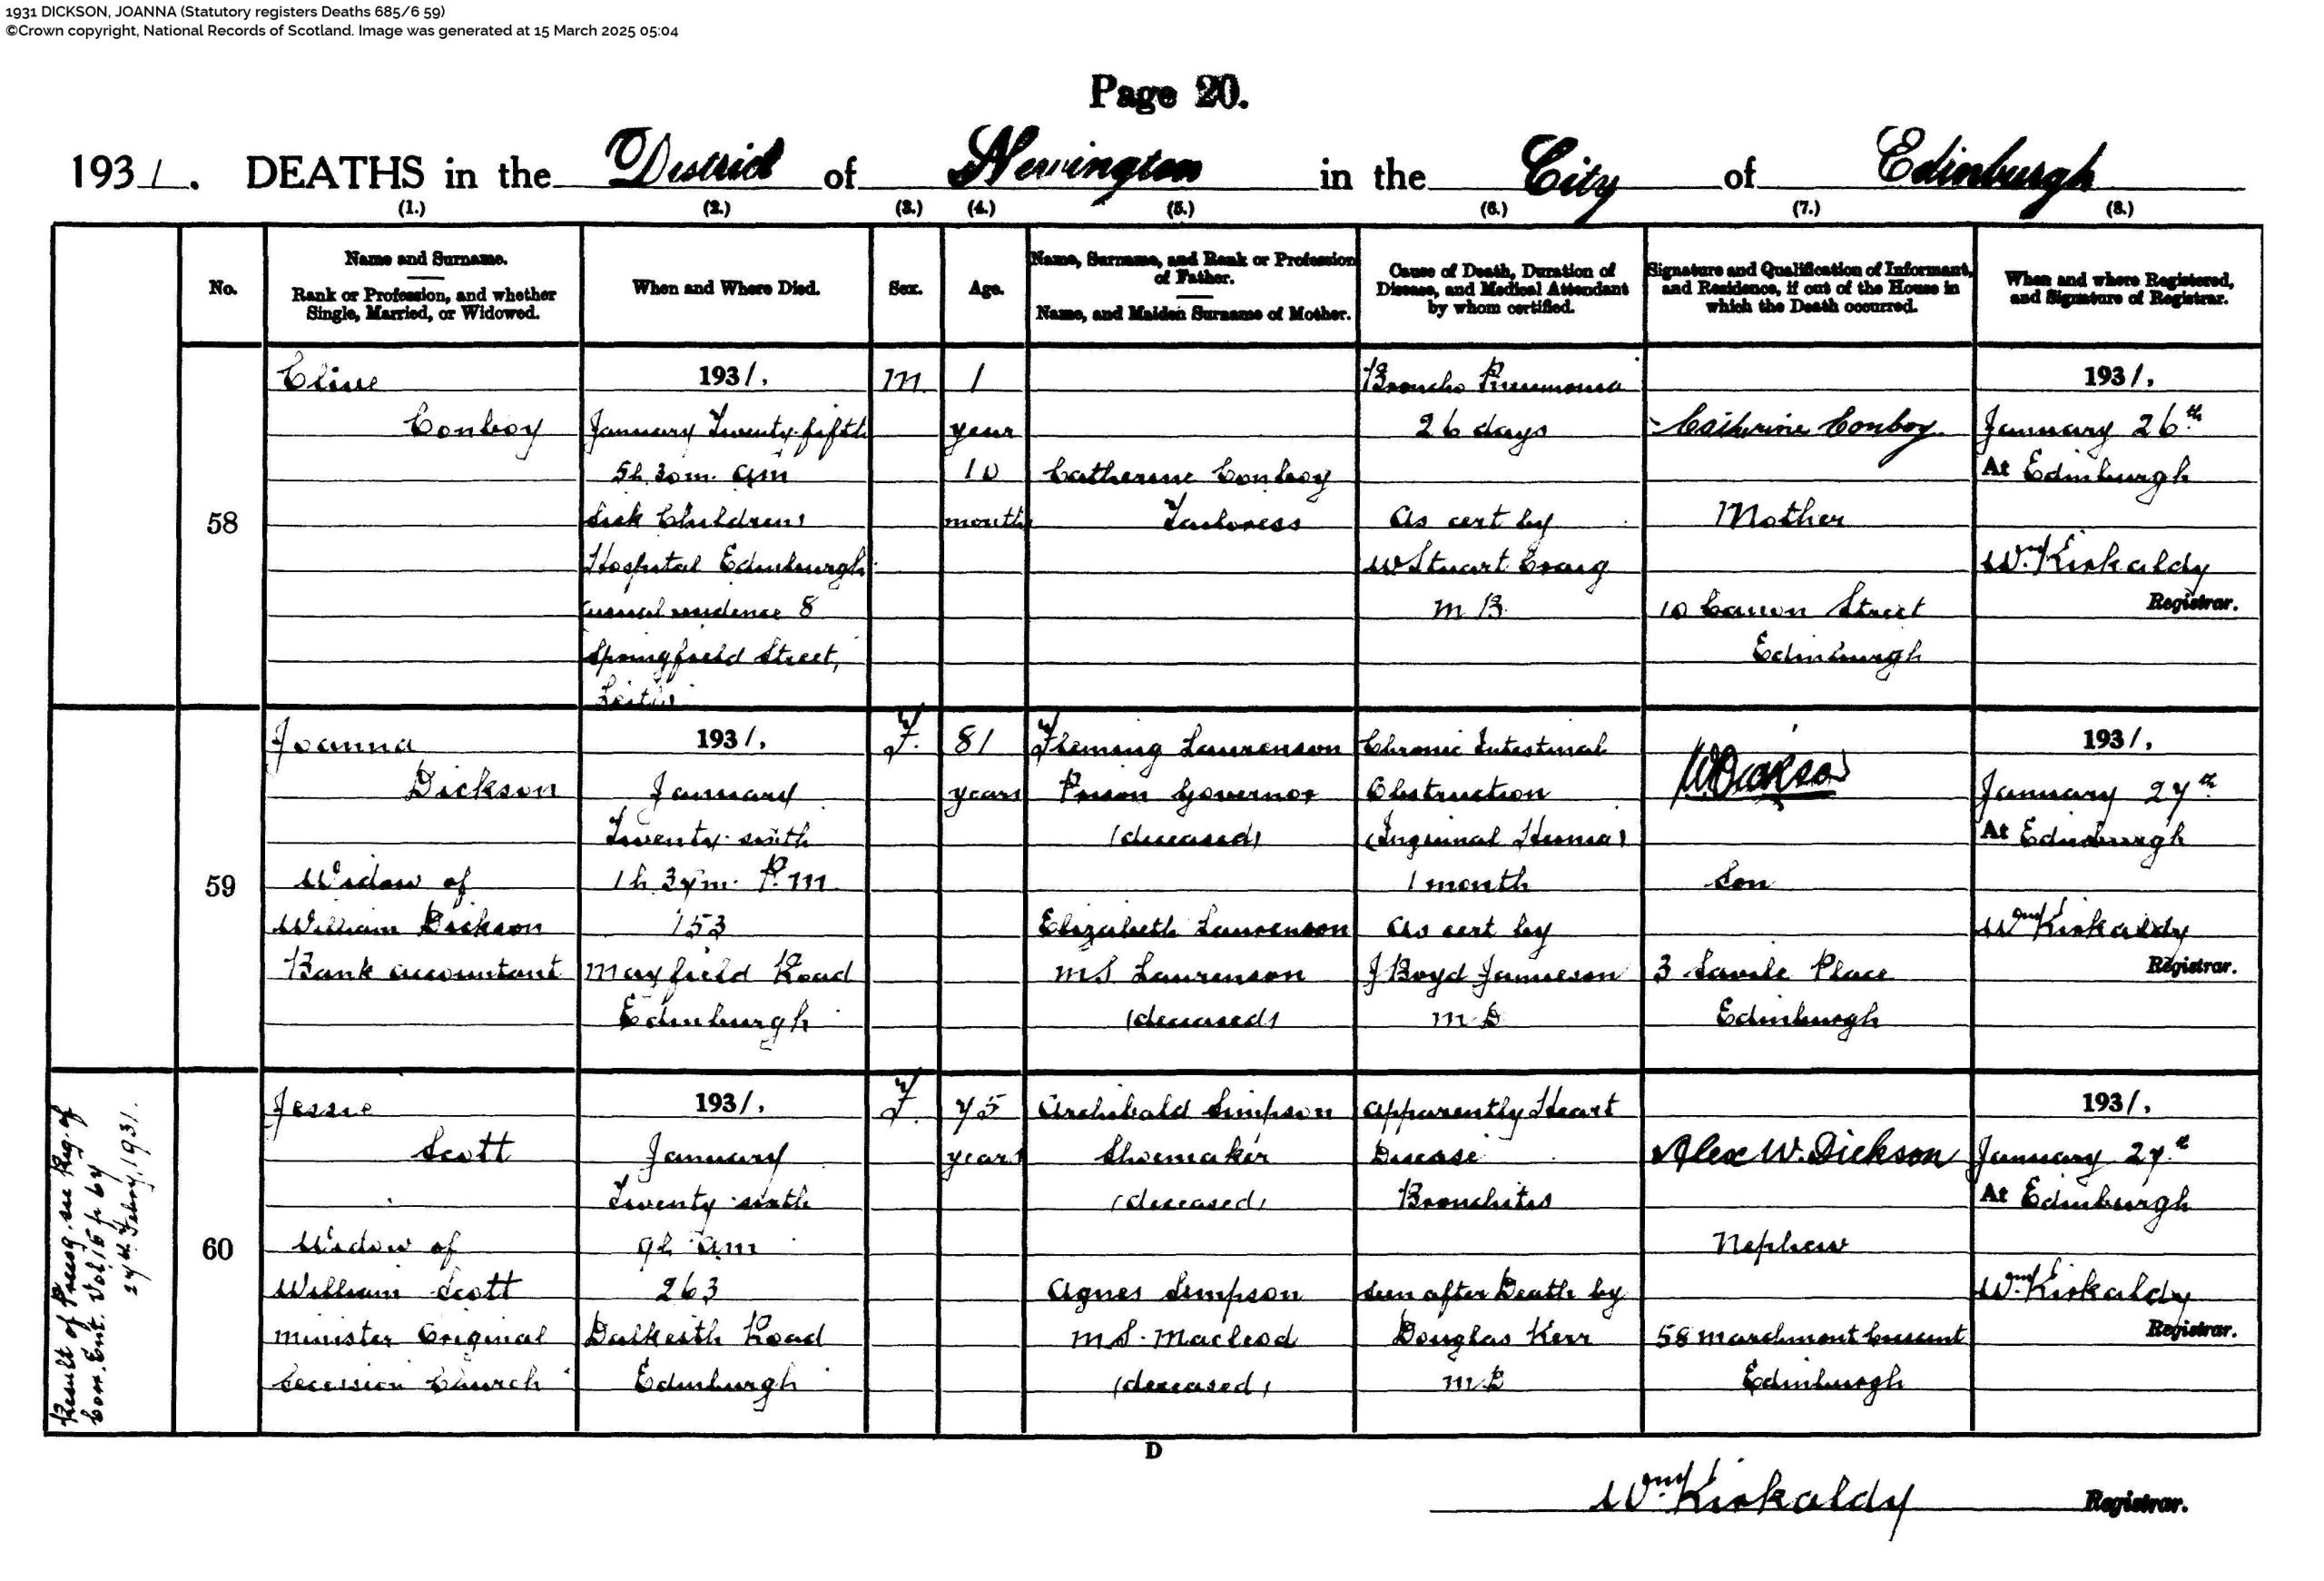 1931 DICKSON, JOANNA (Statutory registers Deaths 685/6 59)
©Crown copyright, National Records of Scotland. Image was generated at 15 March 2025 05:04
Page 20.
1931. DEATHS in the District of Newington in the City of Edinburgh
(1.) (2.) (3.) (4.) (5.) (6.) (7.) (8.)
No.
Name and Surname.
Rank or Profession, and whether
Single, Married, or Widowed.
When and Where Died.
Sex.
Age.
Name, Surname, and Rank or Profession
of Father.
Name, and Maiden Surname of Mother.
Cause of Death, Duration of
Disease, and Medical Attendant
by whom certified.
Signature and Qualification of Informant,
and Residence, if out of the House in
which the Death occurred.
When and where Registered,
and Signature of Registrar.
58
Clive
Conboy
1931.
January Twenty-fifth
5h. 30m. am
Sick Childrens
Hospital Edinburgh
usual residence 8
Springfield Street,
Leith
M.
1
year
10
months
Catherine Conboy
Broncho Pneumonia
26 days
As cert by
W Stuart Craig
M B.
Catherine Conboy
Mother
10 Canon Street
Edinburgh
1931.
January 26th
At Edinburgh
Wm. Kirkaldy
Registrar.
59
Joanna
Dickson
Widow of
William Dickson
Bank accountant
1931.
January
Twenty-sixth
1h 37m. P.M
153
Mayfield Road
Edinburgh
F.
81
years
Fleming Laurenson
Prison Governor
(deceased)
Elizabeth Laurenson
M.S. Laurenson
(deceased)
Chronic Intestinal
Obstruction
(Inguinal Hernia)
1 month
As cert by
J Boyd Jamieson
M D
W Dickson
Son
3 Savile Place
Edinburgh
1931.
January 27th
At Edinburgh
Wm Kirkaldy
Registrar.
Result of Precog. see Reg. of
Corr. Ent. Vol 15 p 64
27th Febry. 1931.
60
Jessie
Scott
Widow of
William Scott
Minister Original
Secession Church
1931.
January
Twenty-sixth
9h am
263
Dalkeith Road
Edinburgh
F.
75
years
Archibald Simpson
Shoemaker
(deceased)
Agnes Simpson
M.S. Macleod
(deceased)
Apparently Heart
Disease
Bronchitis
Seen after Death by
Douglas Kerr
M.B
Alex W. Dickson
Nephew
58 Marchmont Crescent
Edinburgh
1931.
January 27th
At Edinburgh
Wm. Kirkaldy
Registrar.
D
Wm. Kirkaldy Registrar.